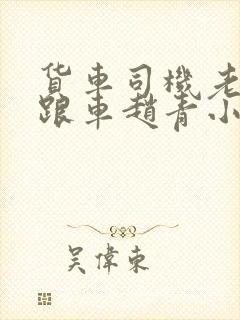 貨車司機老
跟車趙青小
吳偉東